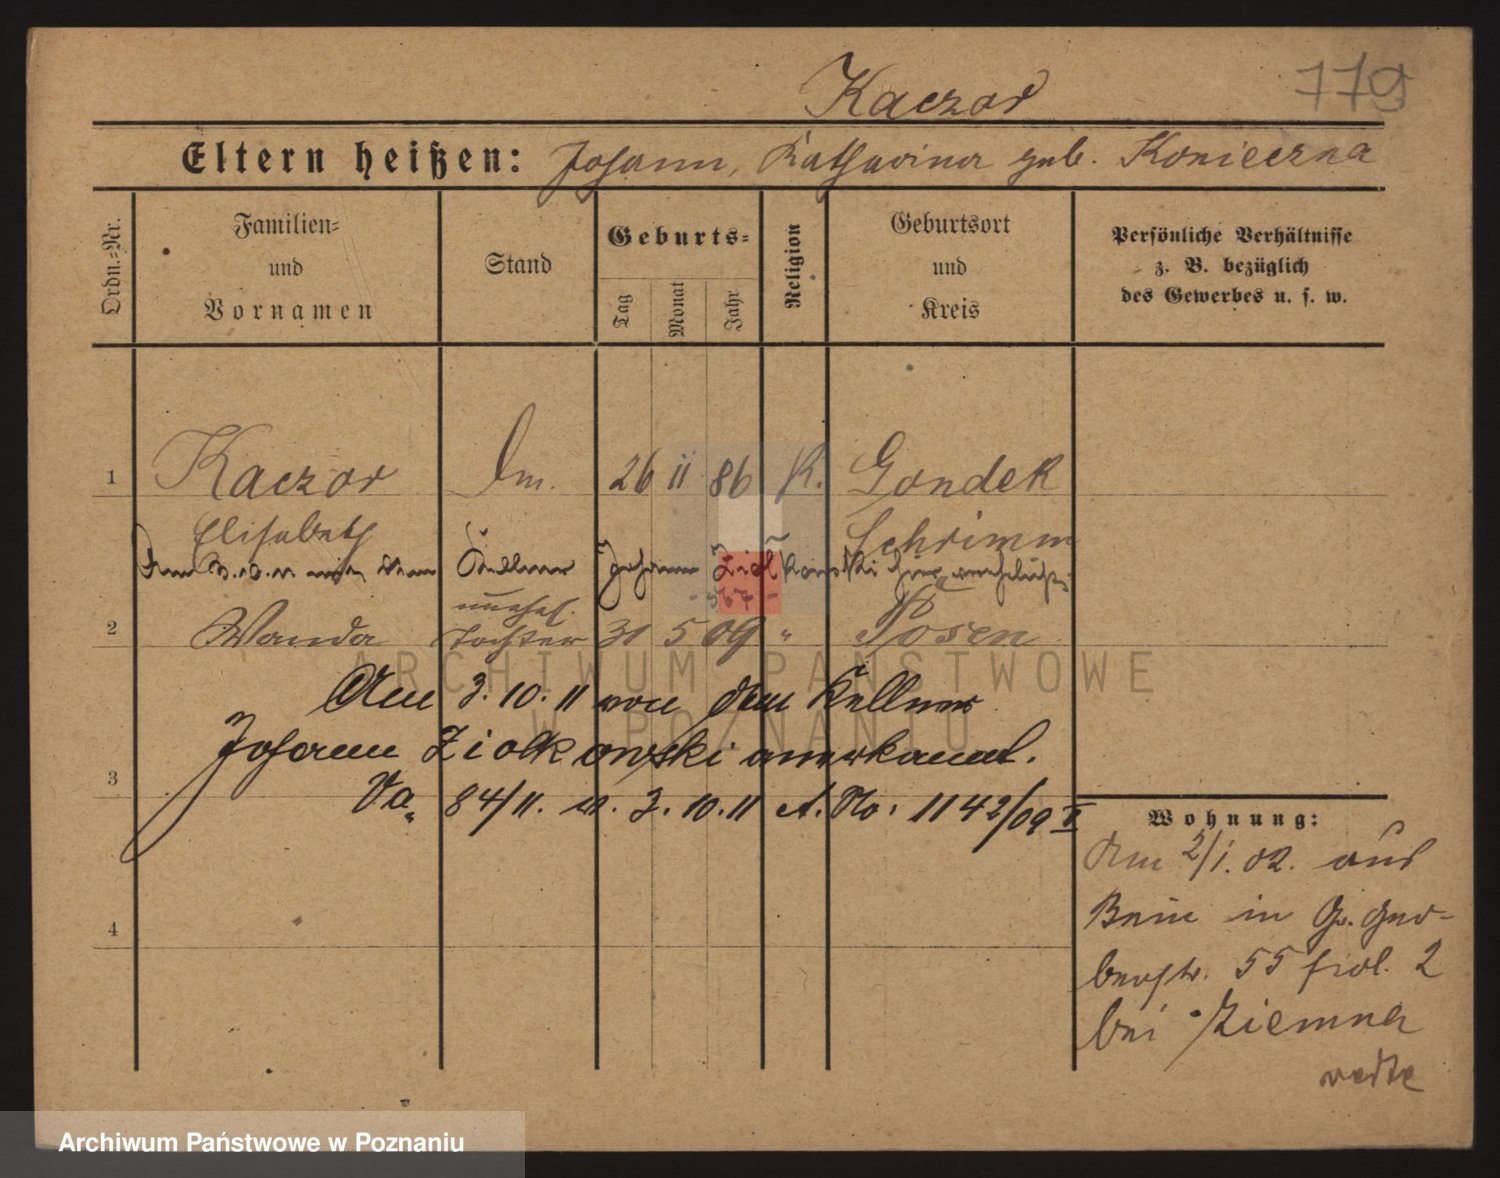 779
Kaczor
Eltern heißen: Johann, Katharina geb. Konieczna
Ordn.-Nr.
Familien-
und
Vornamen
Stand
Geburts-
Tag
Monat
Jahr
Religion
Geburtsort
und
Kreis
Persönliche Verhältnisse
z. B. bezüglich
des Gewerbes u. s. w.
1 Kaczor 26 11 86 K. Gondek
Elisabeth Schrimm
Am mit dem Kellner Johann Ziolkowski hier verehelicht
- 567 -
unehel.
2 Wanda Tochter 31 5 09 " Posen
Am 3.10.11 von dem Kellner
Johann Ziolkowski anerkannt.
3
Va. 84/11. v. 3.10.11 A. No: 1142/09 II
4
Wohnung:
Am 2/1.02. aus
Bnin in Gr. Ger-
berstr. 55 frdl. 2
bei Ziemna
ARCHIWUM PAŃSTWOWE
W POZNANIU
Archiwum Państwowe w Poznaniu